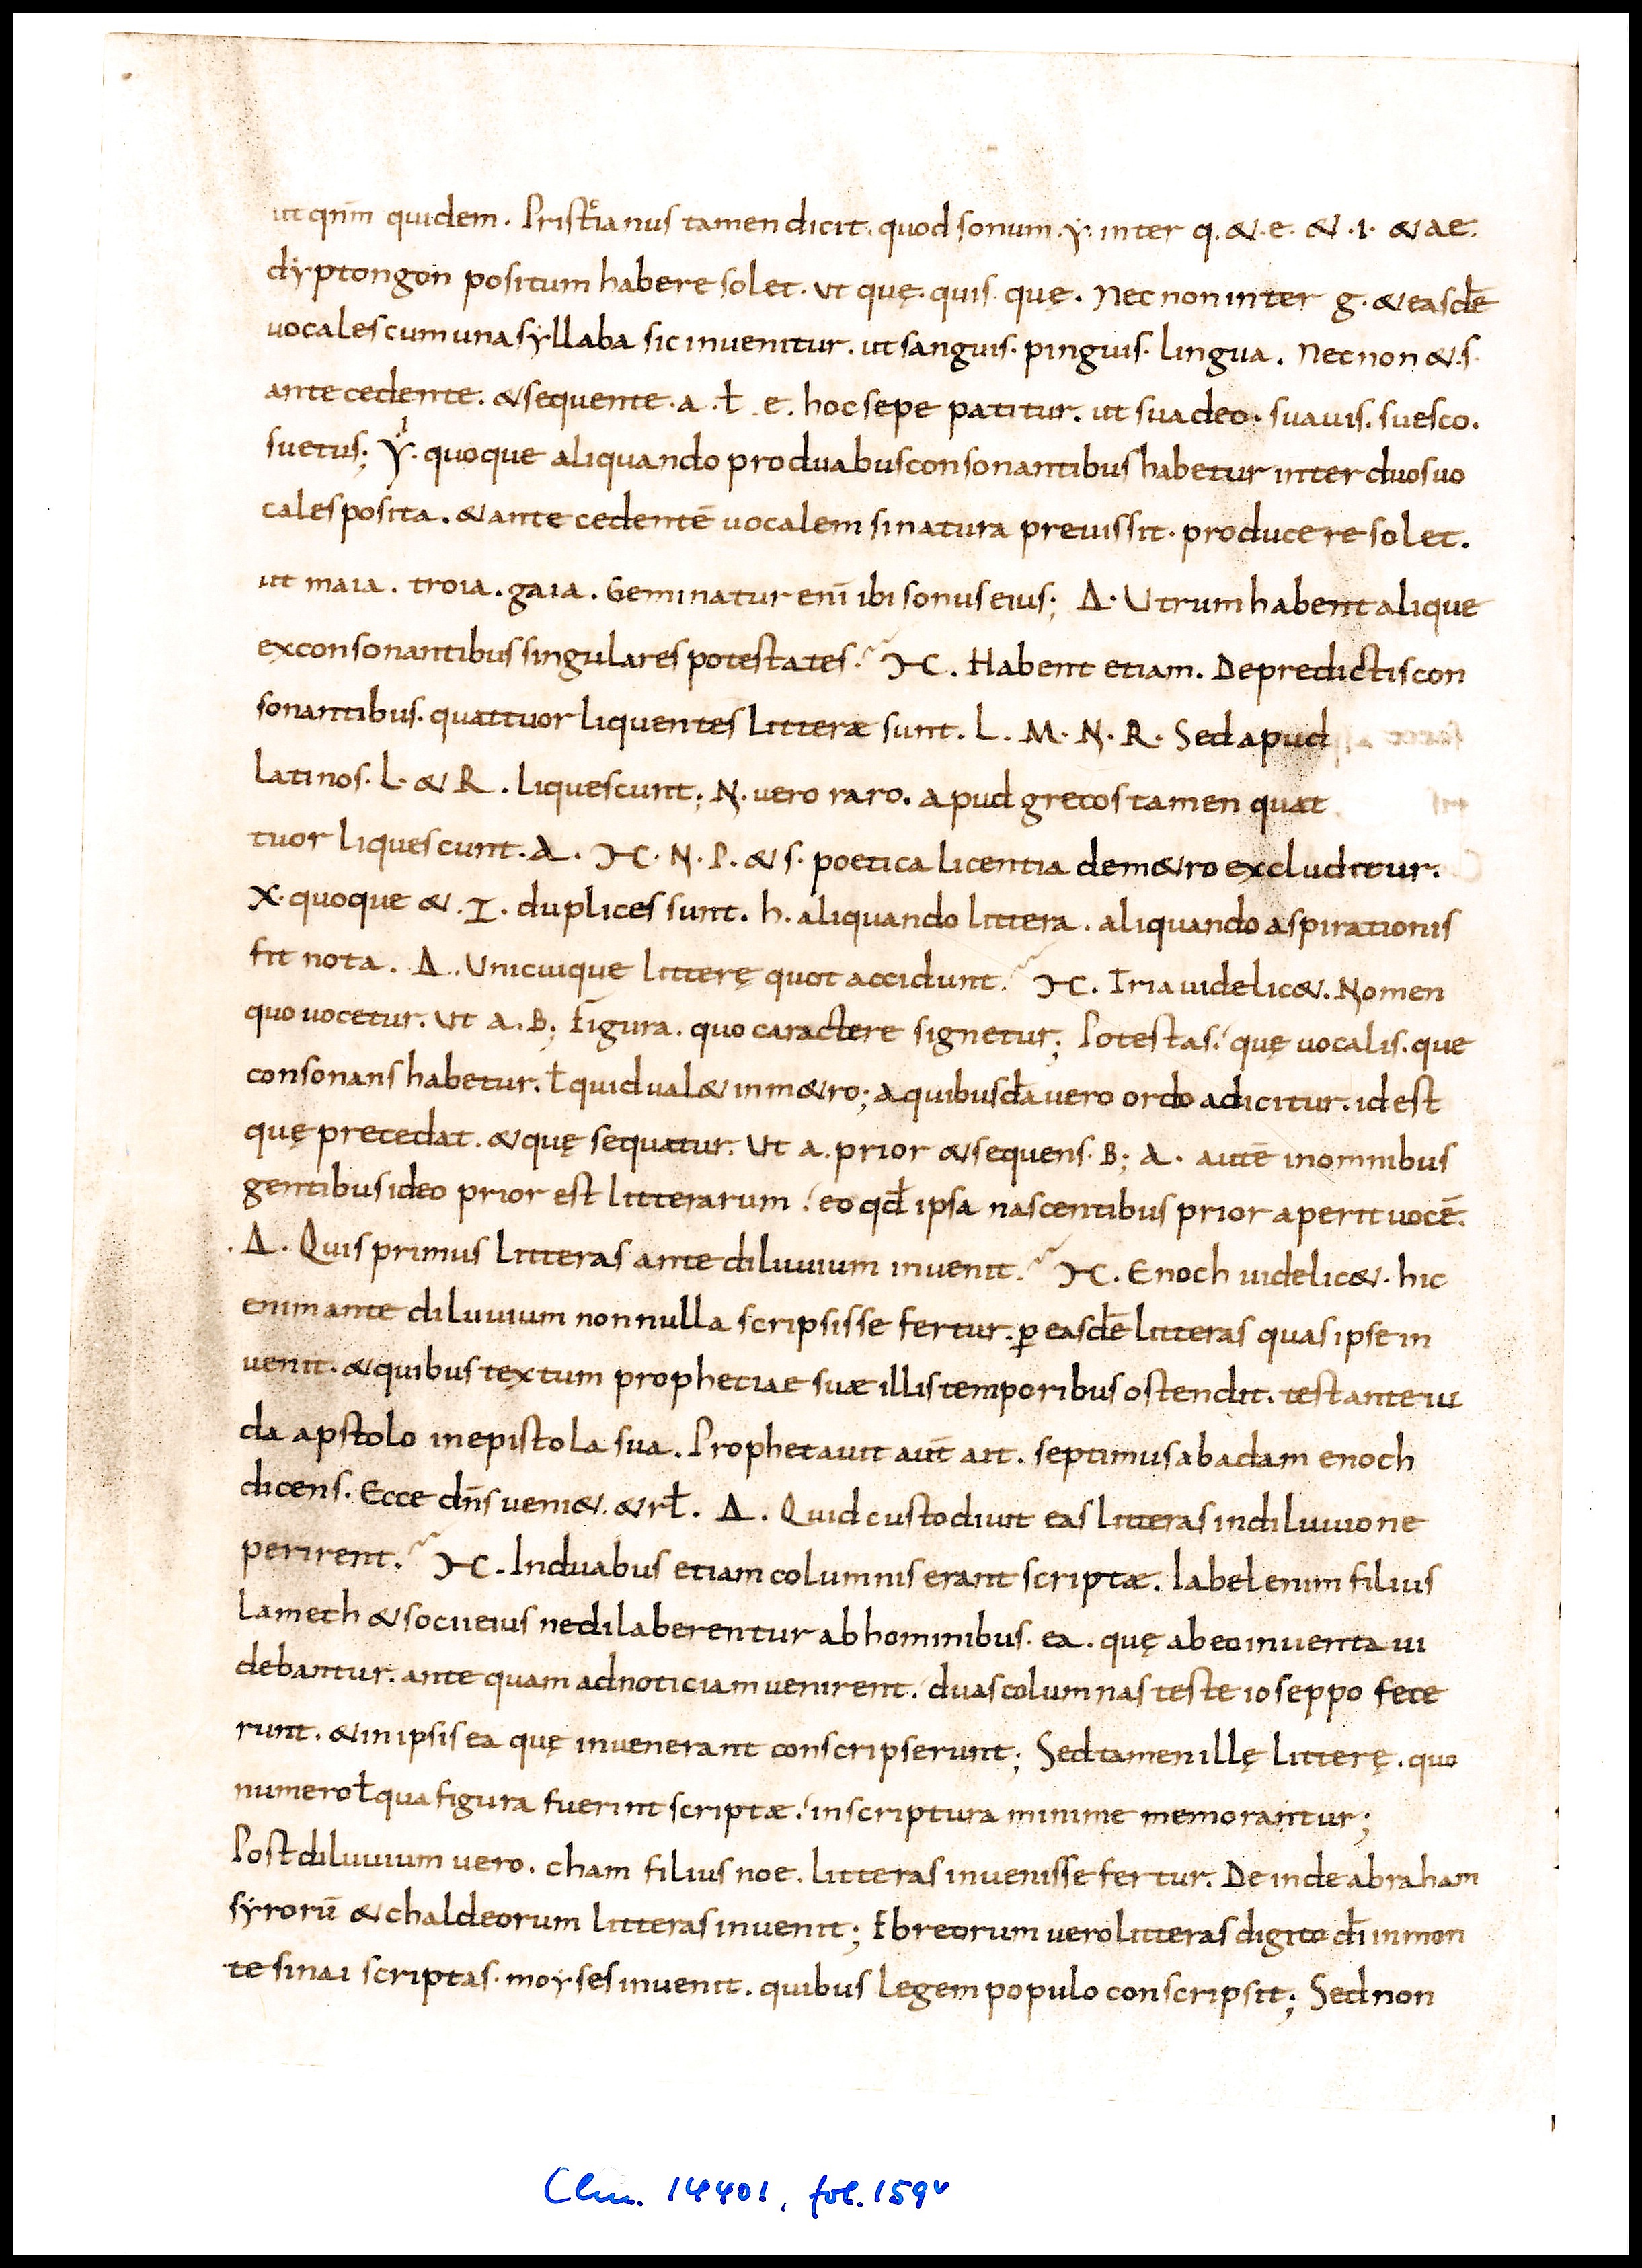 ut qm̄m quidem. Pristianus tamen dicit. quod sonum .y. inter q. & .e. & .i. & ae.
dyptongon positum habere solet. ut quę. quis. quę. Nec non inter g. & easdē
uocales cum una syllaba sic inuenitur. ut sanguis. pinguis. lingua. Nec non & .s.
antecedente. & sequente .a. ł .e. hoc sepe patitur. ut suadeo. suauis. suesco.
suetus; Y. quoque aliquando pro duabus consonantibus habetur inter duos uo
cales posita. & antecedentē uocalem si natura breuis sit. producere solet.
ut maia. troia. gaia. Geminatur enī ibi sonus eius; Δ. Utrum habent alique
ex consonantibus singulares potestates. ϶C. Habent etiam. De predictis con
sonantibus. quattuor liquentes litteræ sunt. L. M. N. R. Sed apud
latinos. L. & R. liquescunt; N. uero raro. apud grecos tamen quat
tuor liquescunt. Λ. ϶C. N. P. & s. poetica licentia de m&ro excluditur.
X. quoque & .I. duplices sunt. h. aliquando littera. aliquando aspirationis
fit nota. Δ. Unicuique litterę quot accidunt. ϶C. Tria uidelic&. Nomen
quo uocetur. Ut a. B; Figura. quo caractere signetur; Potestas. quę uocalis. que
consonans habetur. ł quid ual& in m&ro; a quibusdā uero ordo adicitur. id est
quę precedat. & quę sequatur. Ut a. prior & sequens. B; A. autē in omnibus
gentibus ideo prior est litterarum. eo qđ ipsa nascentibus prior aperit uocē.
Δ. Quis primus litteras ante diluuium inuenit. ϶C. Enoch uidelic&. hic
enim ante diluuium nonnulla scripsisse fertur. ꝑ easdē litteras quas ipse in
uenit. & quibus textum prophetiae suæ illis temporibus ostendit. testante iu
da apstolo in epistola sua. Prophetauit aūt ait. septimus ab adam enoch
dicens. Ecce dn̄s ueni&. & rł. Δ. Quid custodiuit eas litteras in diluuio ne
perirent. ϶C. In duabus etiam columnis erant scriptæ. Iabel enim filius
Lamech & socii eius ne dilaberentur ab hominibus. ea. quę ab eo inuenta ui
debantur. ante quam ad noticiam uenirent. duas columnas teste ioseppo fece
runt. & in ipsis ea quę inuenerant conscripserunt; Sed tamen illę litterę. quo
numero ł qua figura fuerint scriptæ. in scriptura minime memorantur;
Post diluuium uero. cham filius noe. litteras inuenisse fertur. Deinde abraham
syrorū & chaldeorum litteras inuenit; Ebreorum uero litteras digito dī in mon
te sinai scriptas. moyses inuenit. quibus legem populo conscripsit; Sed non
Clm. 14401, fol. 159v